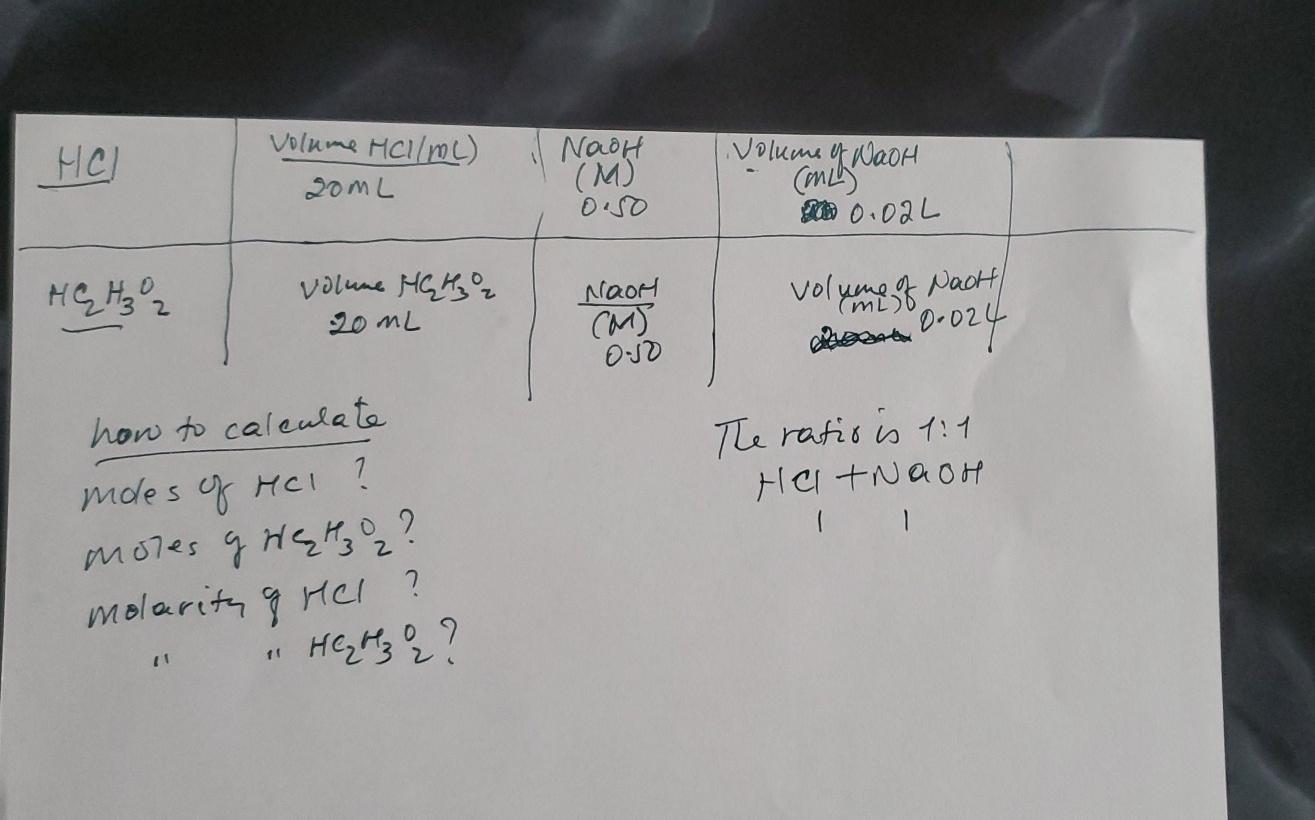 HCl
Volume HCl(mL)
20mL
NaOH
(M)
0.50
Volume of NaOH
(mL)
0.02L
HC2H3O2
Volume HC2H3O2
20 mL
NaOH
(M)
0.50
Volume of NaOH
(mL)
how to calculate
moles of HCl ?
moles of HC2H3O2?
molarity of HCl ?
" " HC2H3O2?
The ratio is 1:1
HCl + NaOH
1 1